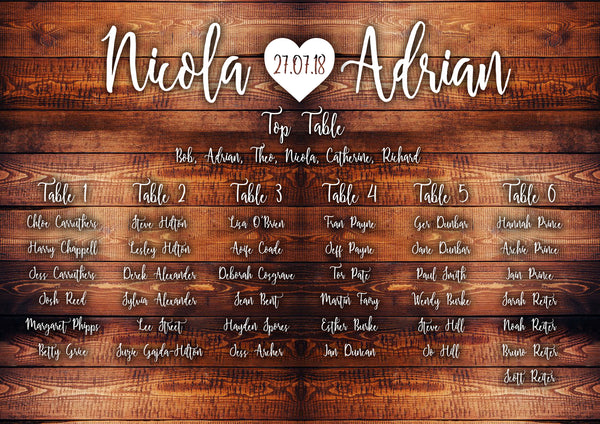 Nicola 27.07.18 Adrian
Top Table
Bob, Adrian, Theo, Nicola, Catherine, Richard
Table 1
Chloe Carruthers
Harry Chappell
Jess Carruthers
Josh Reed
Margaret Phipps
Betty Grice
Table 2
Steve Hilton
Lesley Hilton
Derek Alexander
Sylvia Alexander
Lee Street
Suzie Gajda-Hilton
Table 3
Lisa O'Brien
Aoife Coade
Deborah Cosgrave
Jean Bent
Hayden Spores
Jess Archer
Table 4
Fran Payne
Jeff Payne
Tor Pate
Martin Tary
Esther Burke
Ian Duncan
Table 5
Ger Dunbar
Jane Dunbar
Paul Smith
Wendy Burke
Steve Hill
Jo Hill
Table 6
Hannah Prince
Archie Prince
Iain Prince
Sarah Reiter
Noah Reiter
Bruno Reiter
Scott Reiter